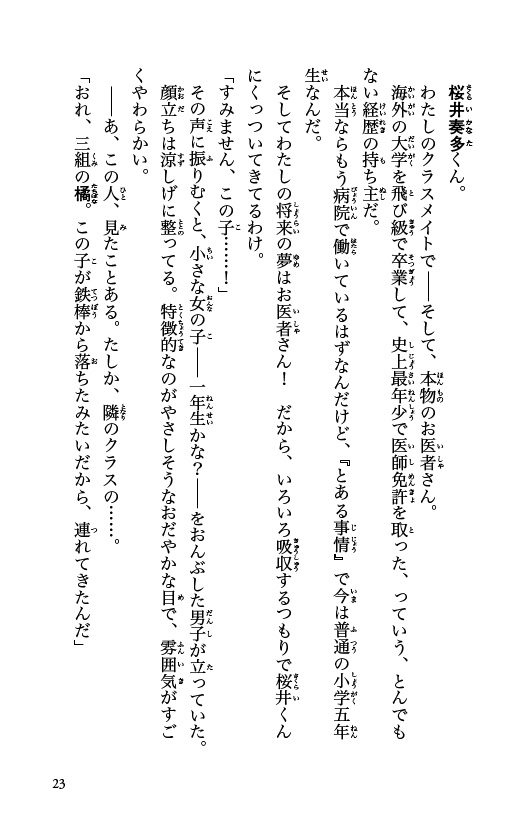 桜井奏多くん。
わたしのクラスメイトで――そして、本物のお医者さん。
海外の大学を飛び級で卒業して、史上最年少で医師免許を取った、っていう、とんでも
ない経歴の持ち主だ。
本当ならもう病院で働いているはずなんだけど、『とある事情』で今は普通の小学五年
生なんだ。
そしてわたしの将来の夢はお医者さん！　だから、いろいろ吸収するつもりで桜井くん
にくっついてきてるわけ。
「すみません、この子……！」
その声に振りむくと、小さな女の子――一年生かな？――をおんぶした男子が立っていた。
顔立ちは涼しげに整ってる。特徴的なのがやさしそうなおだやかな目で、雰囲気がすご
くやわらかい。
――あ、この人、見たことある。たしか、隣のクラスの……。
「おれ、三組の橘。この子が鉄棒から落ちたみたいだから、連れてきたんだ」
23